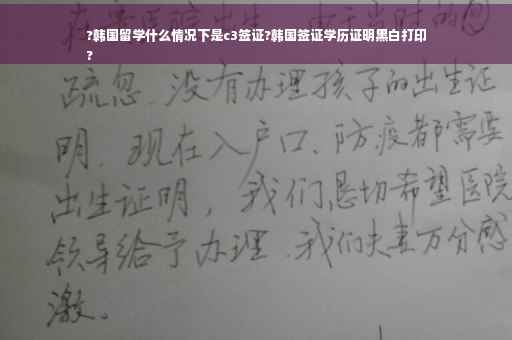 ?韩国留学什么情况下是c3签证?韩国签证学历证明黑白打印
?
疏忽.没有办理孩子的出生证
明.现在入户口、防疫都需要
出生证明，我们恳切希望医院
领导给予办理.我们夫妻万分感
激。